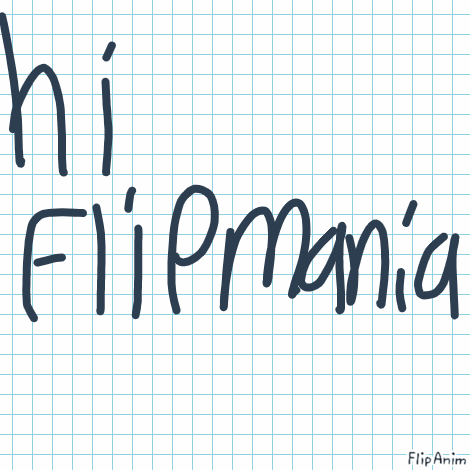 hi
Flipmania
FlipAnim